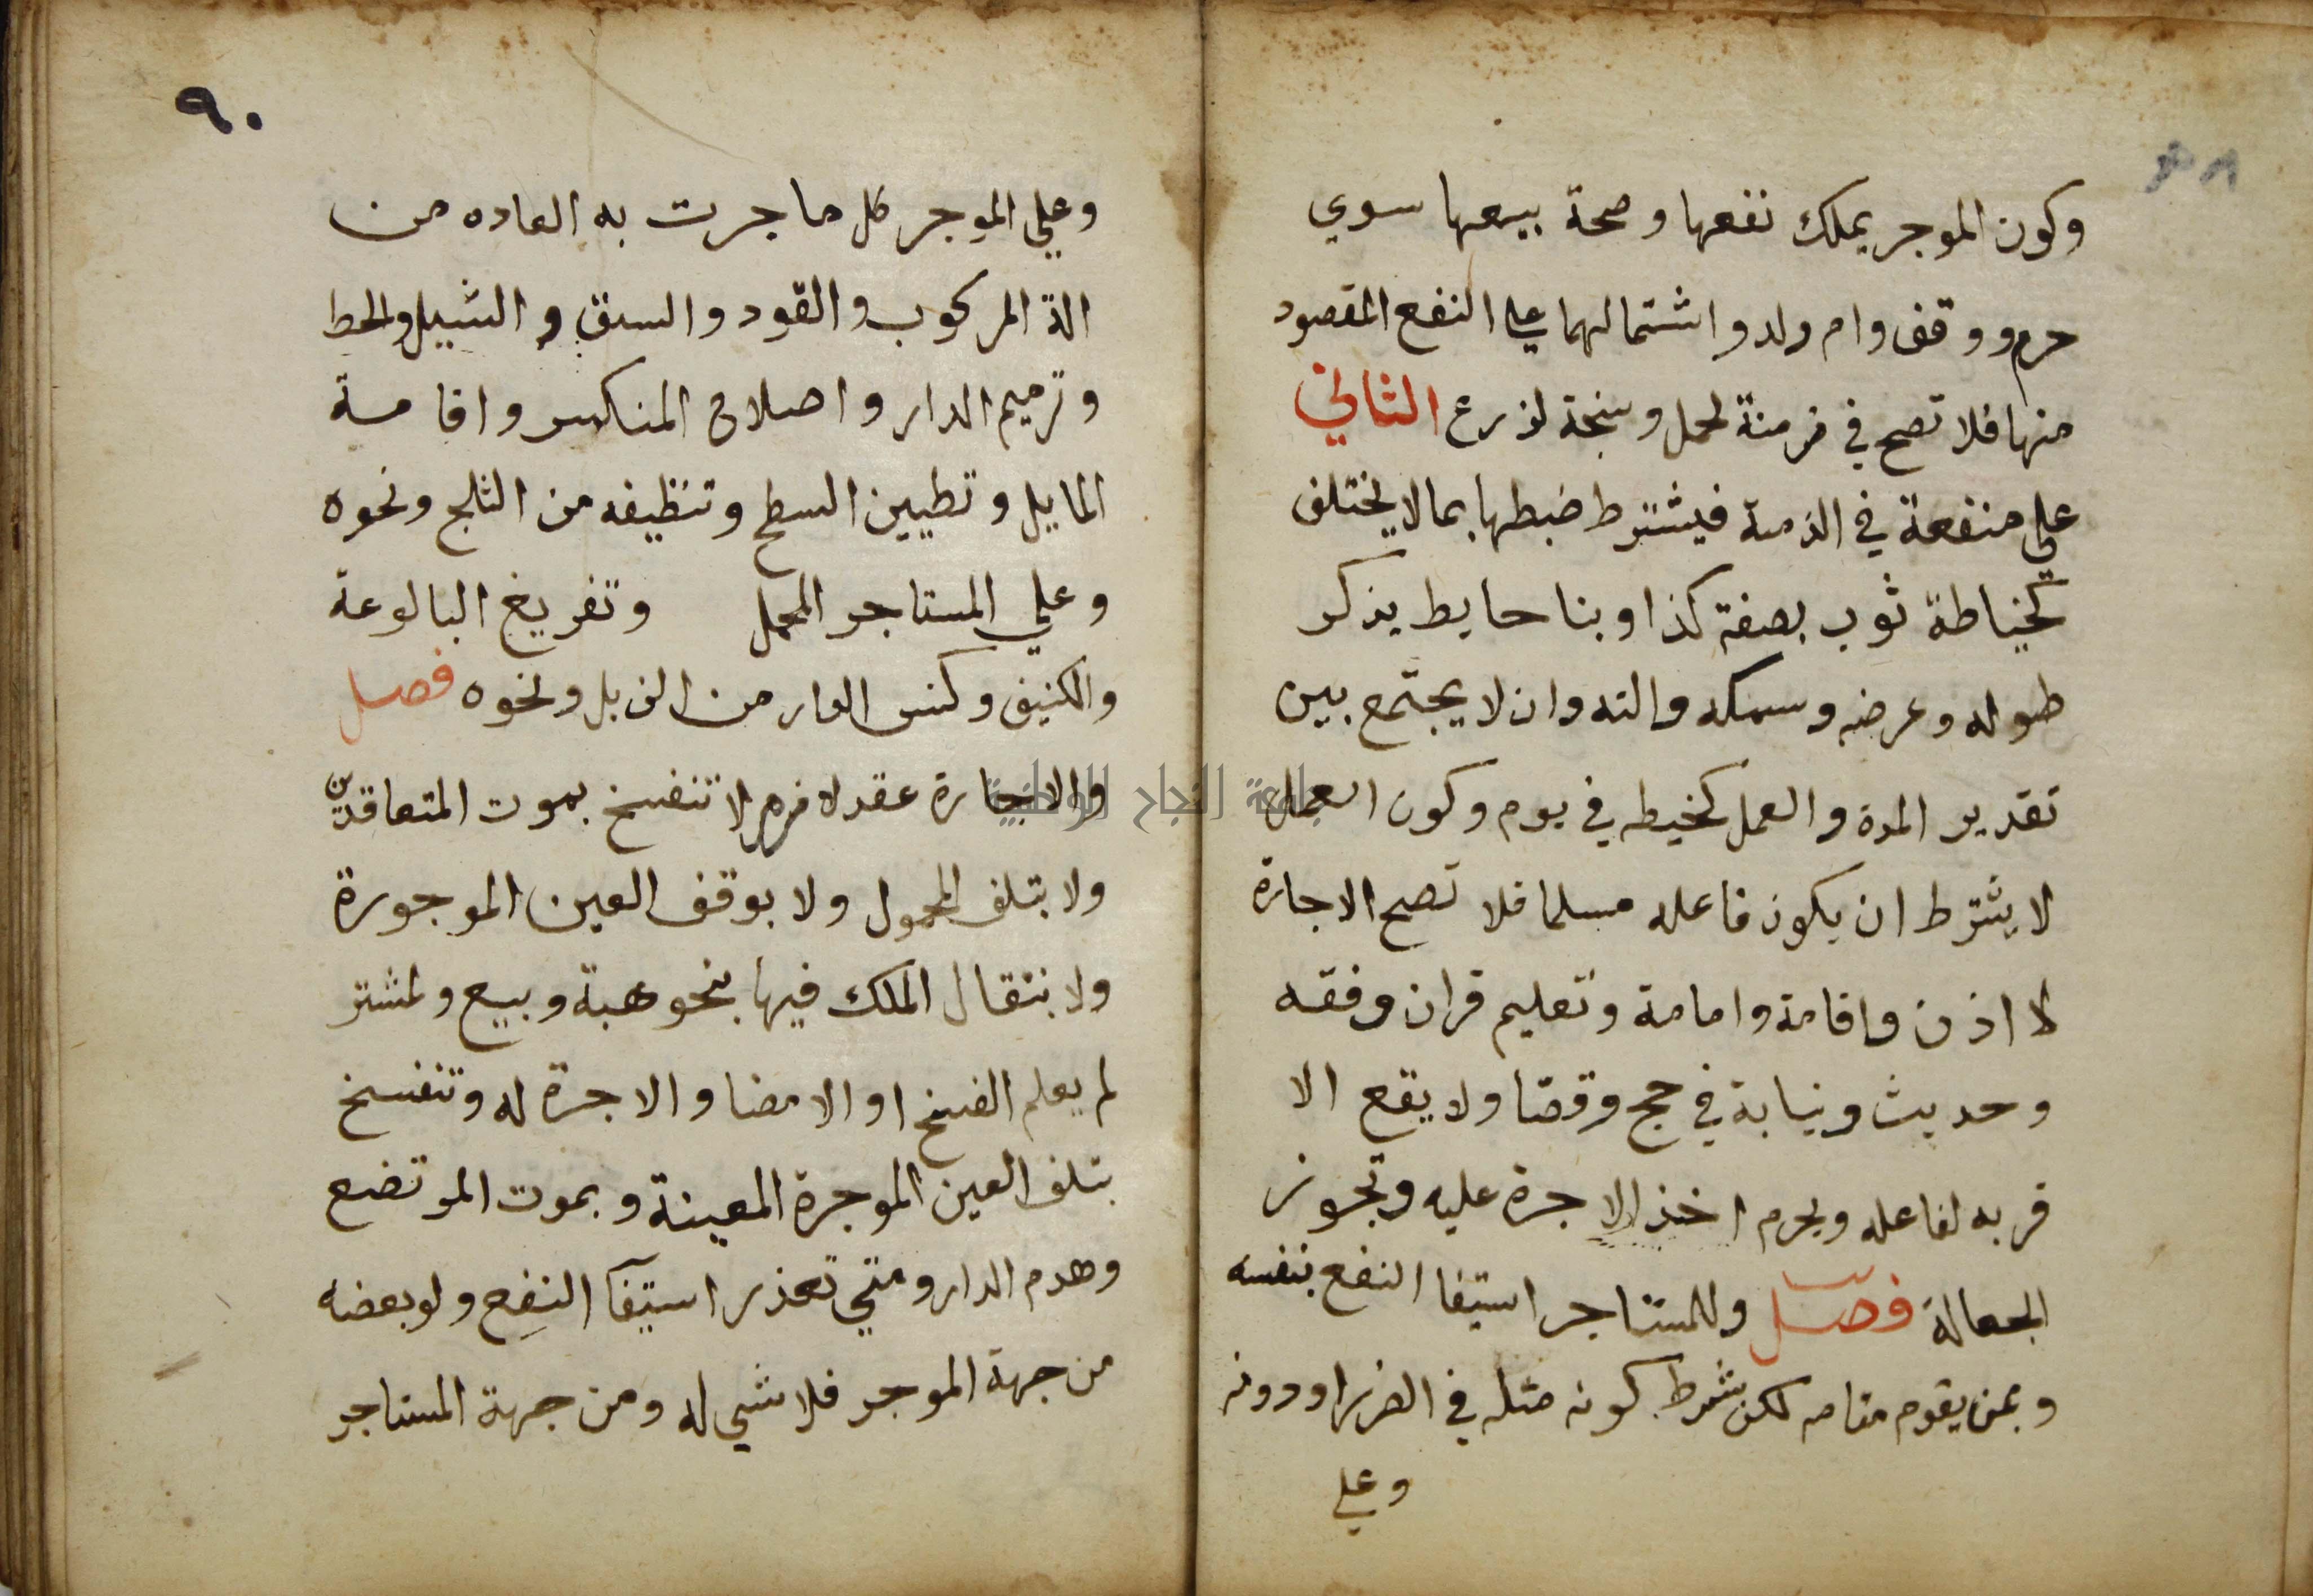 وكون الموجر يملك نفعها وصحة بيعها سوي
حر ووقف وام ولد واشتمالهما علي النفع المقصود
منها فلا تصح في زمنة لحمل وسبخة لزرع الثاني
علي منفعة في الذمة فيشترط ضبطها بما لا يختلف
كخياطة ثوب بصفة كذا وبنا حايط يذكر
طوله وعرضه وسمكه والته وان لا يجتمع بين
تقدير المدة والعمل كخيطه في يوم وكون العمل
لا يشترط ان يكون فاعله مسلما فلا تصح الاجارة
لاذن واقامة وامامة وتعليم قران وفقه
وحديث ونيابة في حج وقضا ولا يقع الا
قربه لفاعله ويحرم اخذ الاجرة عليه وتجوز
الجعالة فصل وللمستاجر استيفا النفع بنفسه
وبمن يقوم مقامه لكن بشرط كونه مثله في الضرر او دونه
وعلي
٩٠
وعلي الموجر كل ما جرت به العاده من
الة المركوب والقود والسوق والشيل والحط
وترميم الدار واصلاح المنكسر واقامة
المايل وتطيين السطح وتنظيفه من الثلج ونحوه
وعلي المستاجر المحمل وتفريغ البالوعة
والكنيف وكنس الدار من الزبل ونحوه فصل
والاجارة عقد لازم لا تنفسخ بموت المتعاقدين
ولا بتلف المحمول ولا بوقف العين الموجورة
ولا بنتقال الملك فيها بنحو هبة وبيع ولمشتر
لم يعلم الفسخ او الامضا والاجرة له وتنفسخ
بتلف العين الموجرة المعينة وبموت المرتضع
وهدم الدار ومتي تعذر استيفآ النفع ولو بعضه
من جهة الموجر فلا شي له ومن جهة المستاجر
جامعة النجاح الوطنية